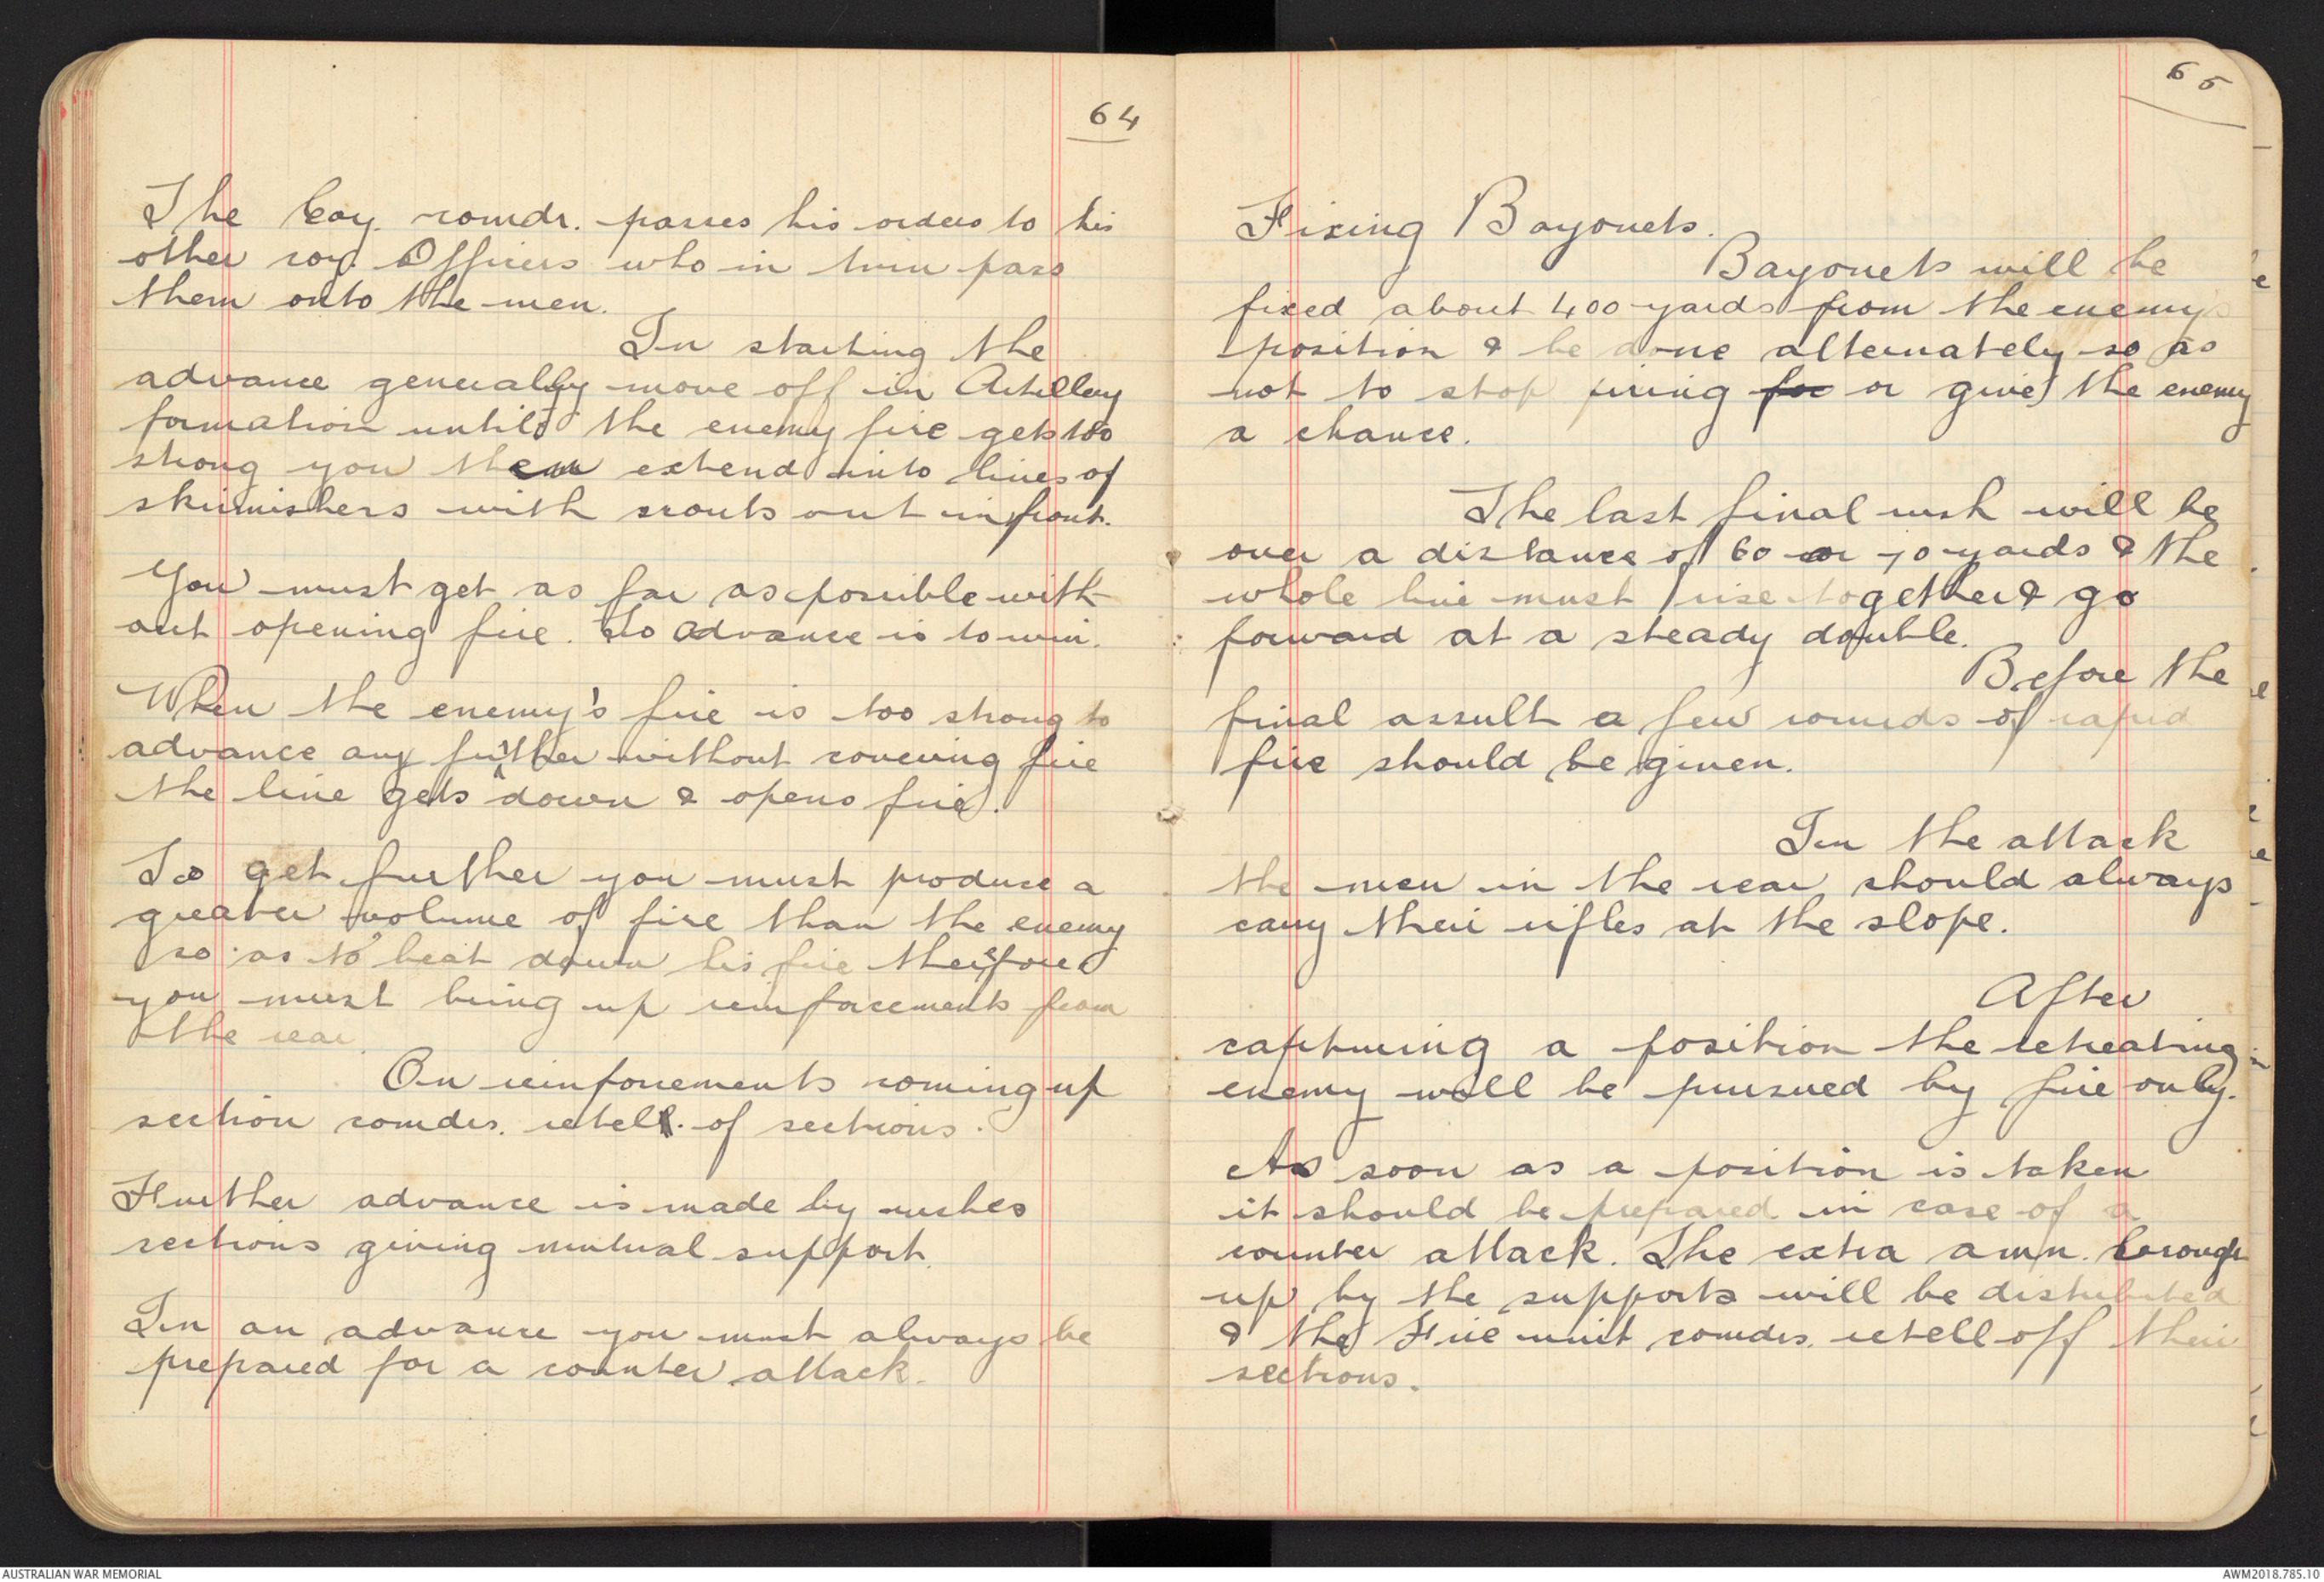 64
The Coy. comdr. passes his orders to his
other coy. Officers who in turn pass
them onto the men.
In starting the
advance generally move off in Artillery
formation until the enemy fire gets too
strong you then extend into lines of
skirmishers with scouts out in front.
You must get as far as possible with-
out opening fire. To advance is to win.
When the enemy's fire is too strong to
advance any further without covering fire
the line gets down & opens fire.
To get further you must produce a
greater volume of fire than the enemy
so as to beat down his fire therefore
you must bring up reinforcements from
the rear.
On reinforcements coming up
section comdrs. retell. of sections.
Further advance is made by rushes
sections giving mutual support.
In an advance you must always be
prepared for a counter attack.
65
Fixing Bayonets.
Bayonets will be
fixed about 400 yards from the enemy's
position & be done alternately so as
not to stop firing for or give the enemy
a chance.
The last final rush will be
over a distance of 60 or 70 yards & the
whole line must rise together & go
forward at a steady double.
Before the
final assult a few rounds of rapid
fire should be given.
In the attack
the men in the rear should always
carry their rifles at the slope.
After
capturing a position the retreating
enemy will be pursued by fire only.
As soon as a position is taken
it should be prepared in case of a
counter attack. The extra amn. brough
up by the supports will be distributed
& the Fire unit comdrs. retell off their
sections.
AUSTRALIAN WAR MEMORIAL
AWM2018.785.10